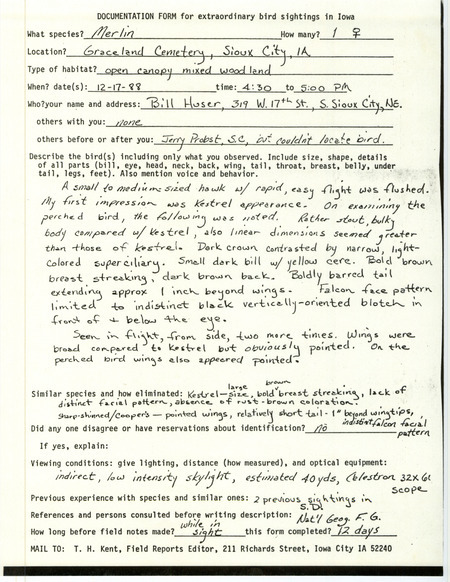 DOCUMENTATION FORM for extraordinary bird sightings in Iowa
What species? Merlin How many? 1 ♀
Location? Graceland Cemetery, Sioux City, IA
Type of habitat? open canopy mixed woodland
When? date(s): 12-17-88 time: 4:30 to 5:00 PM
Who?your name and address: Bill Huser, 319 W. 17th St., S. Sioux City, NE.
others with you: none
others before or after you: Jerry Probst, S.C., but couldn't locate bird.
Describe the bird(s) including only what you observed. Include size, shape, details
of all parts (bill, eye, head, neck, back, wing, tail, throat, breast, belly, under
tail, legs, feet). Also mention voice and behavior.
A small to medium sized hawk w/ rapid, easy flight was flushed.
My first impression was Kestrel appearance. On examining the
perched bird, the following was noted. Rather stout, bulky
body compared w/ Kestrel, also linear dimensions seemed greater
than those of Kestrel. Dark crown contrasted by narrow, light-
colored superciliary. Small dark bill w/ yellow cere. Bold brown
breast streaking, dark brown back. Boldly barred tail
extending approx 1 inch beyond wings. Falcon face pattern
limited to indistinct black vertically-oriented blotch in
front of + below the eye.
Seen in flight, from side, two more times. Wings were
broad compared to Kestrel but obviously pointed. On the
perched bird wings also appeared pointed.
Similar species and how eliminated: Kestrel - large size, bold brown breast streaking, lack of
distinct facial pattern, absence of rust-brown coloration.
Sharp-shinned/Cooper's - pointed wings, relatively short tail - 1" beyond wingtips,
indistinct falcon facial pattern
Did any one disagree or have reservations about identification? no
If yes, explain:
Viewing conditions: give lighting, distance (how measured), and optical equipment:
indirect, low intensity skylight, estimated 40 yds, Celestron 32x
scope
Previous experience with species and similar ones: 2 previous sightings in
S.D.
References and persons consulted before writing description: Nat'l Geog. F.G.
How long before field notes made? while in sight this form completed? 12 days
MAIL TO: T. H. Kent, Field Reports Editor, 211 Richards Street, Iowa City IA 52240